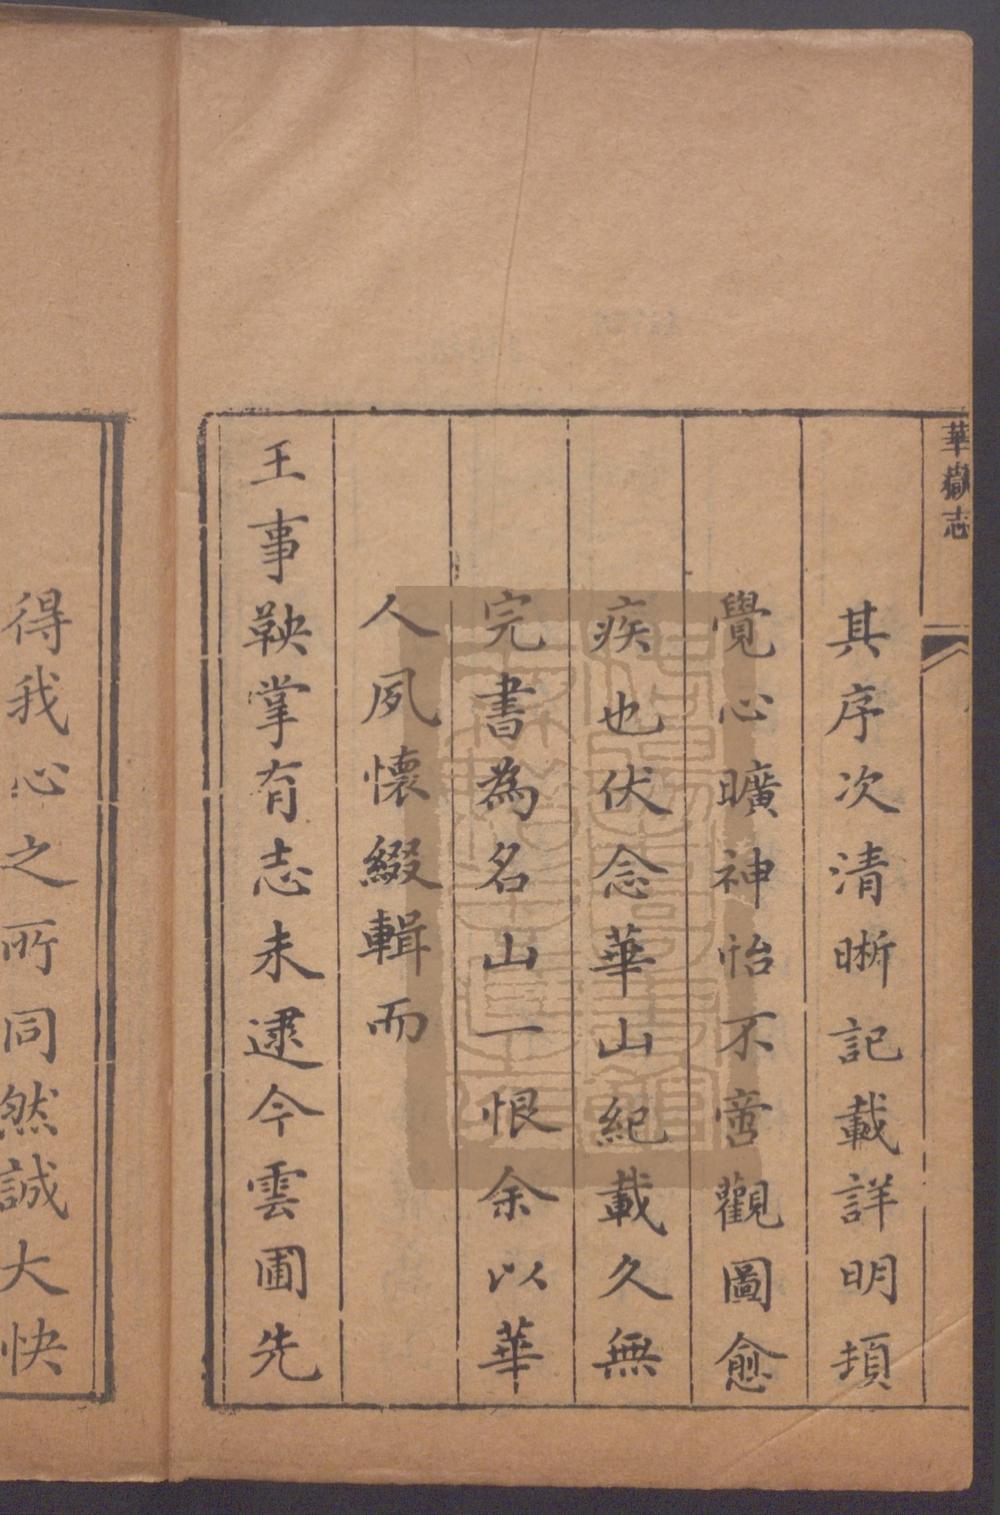 華嶽志
其序次清晰記載詳明頊
覺心曠神怡不啻觀圖愈
疾也伏念華山紀載久無
完書為名山一恨余以華
人夙懷綴輯而
王事鞅掌有志未逮今雲圃先
得我心之所同然誠大快